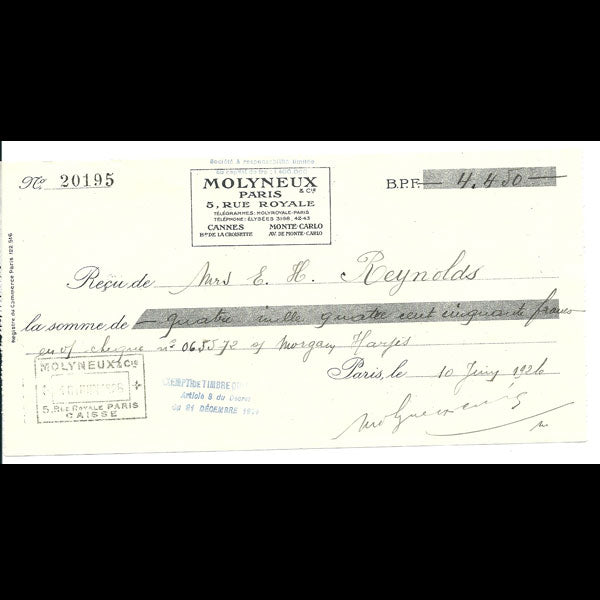 Société à responsabilité limitée
au capital de frs 1.400.000
No. 20195
MOLYNEUX
& Cie
PARIS
5, RUE ROYALE
TÉLÉGRAMMES: MOLYROYALE-PARIS
TÉLÉPHONE: ÉLYSÉES 3198, 42-43
CANNES MONTE-CARLO
Bd DE LA CROISETTE AV. DE MONTE-CARLO
B.P.F. 4.450
Registre du Commerce Paris 122.516
Reçu de Mrs E. H. Reynolds
la somme de quatre mille quatre cent cinquante francs
cheque no 065572 of Morgan Harjes
Paris, le 10 Juin 1926
MOLYNEUX & Cie
5, RUE ROYALE PARIS
CAISSE
EXEMPT DE TIMBRE
Article 8 du Décret
du 21 DÉCEMBRE